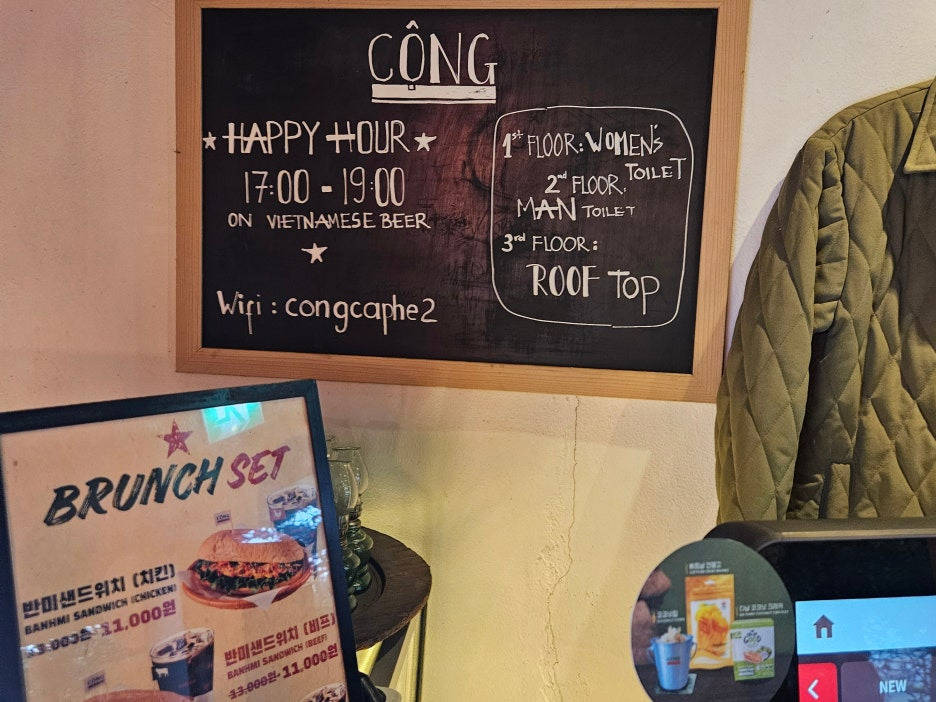 CỘNG
HAPPY HOUR
17:00 - 19:00
ON VIETNAMESE BEER
Wifi : congcaphe2
1st FLOOR: WOMEN'S
TOILET
2nd FLOOR:
MAN TOILET
3rd FLOOR:
ROOF TOP
BRUNCH SET
반미샌드위치 (치킨)
BANHMI SANDWICH (CHICKEN)
13,000원 11,000원
반미샌드위치 (비프)
BANHMI SANDWICH (BEEF)
13,000원 11,000원
NEW